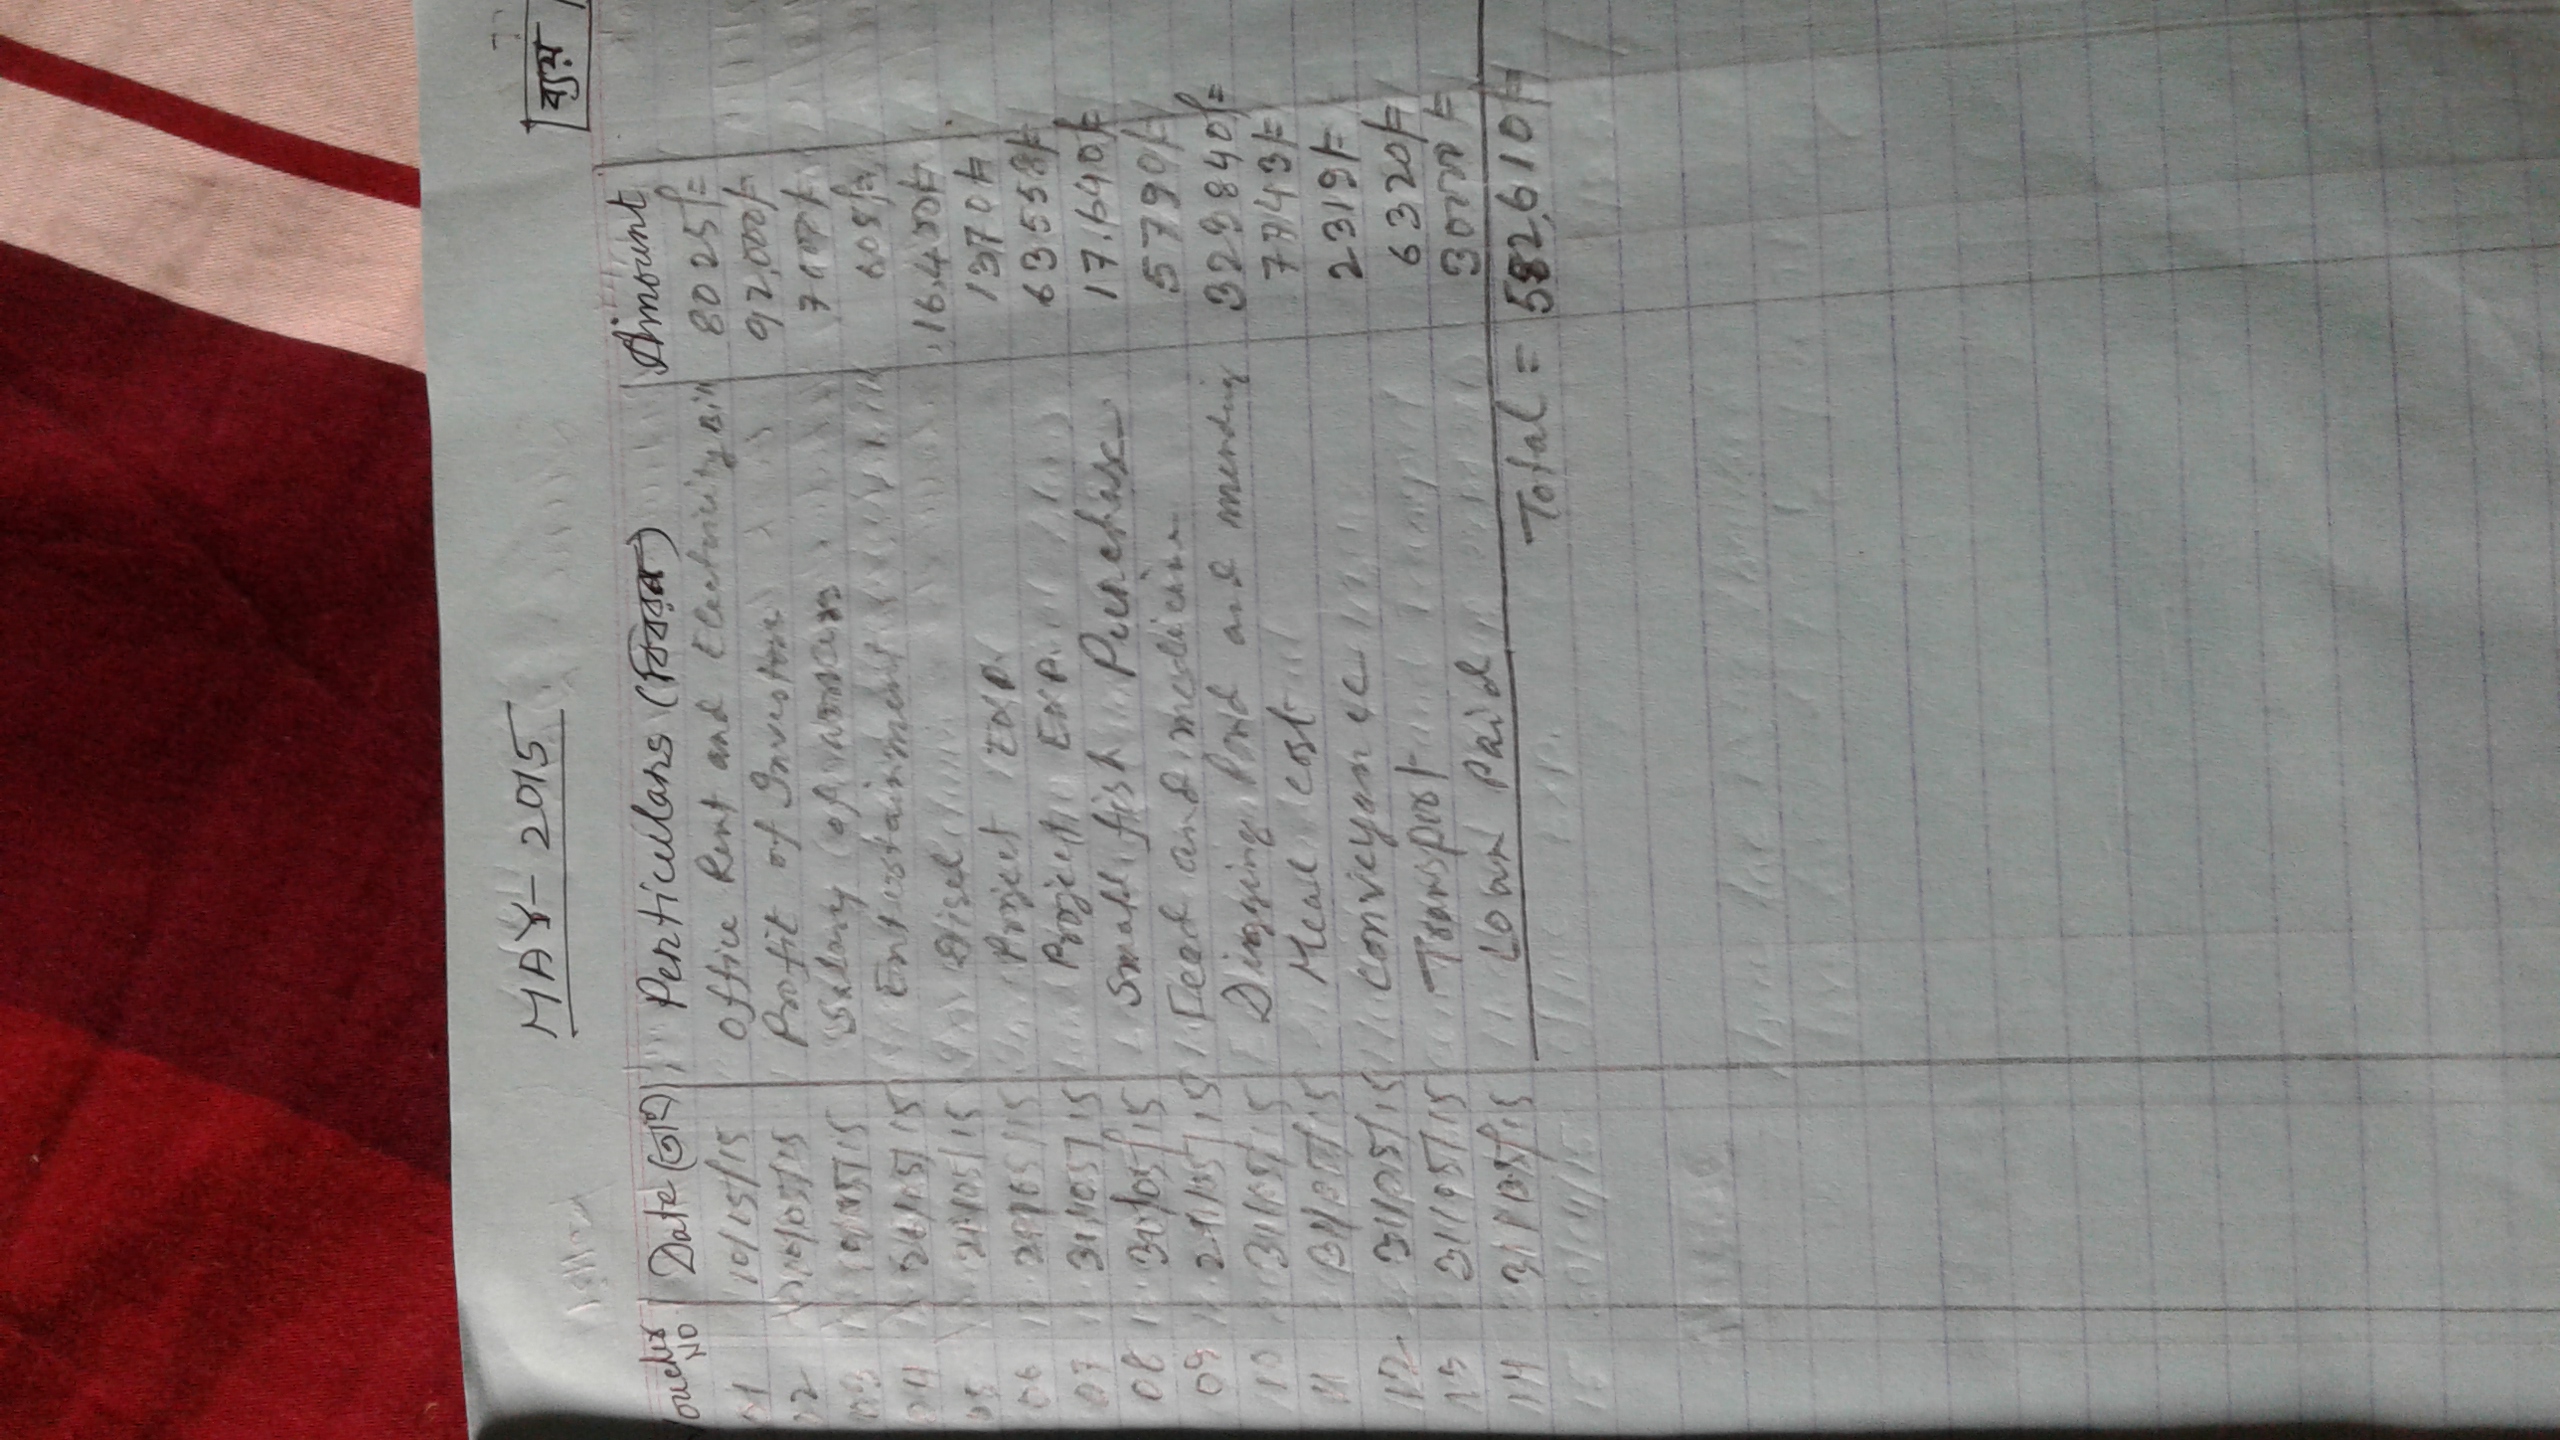 MAY - 2015
ব্যয়
Voucher NO Date (তাং) Perticulars (বিবরন) Amount
01 10/15/15 Office Rent and Electricity Bill 8025/=
02 10/05/15 Profit of Investors 92,000/=
03 10/05/15 Salary of workers 7000/=
04 /05/15 Entertainment 605/=
05 /05/15 Disel 16,400/=
06 /05/15 Project EXP. 1370/=
07 31/05/15 Project EXP. 63558/=
08 30/05/15 Small fish Purchase 17,640/=
09 /05/15 Feed and medicine 5790/=
10 31/05/15 Digging Pond and mending 323840/=
11 31/05/15 Meal cost 7743/=
12 31/05/15 Conveyance 2319/=
13 31/05/15 Transport 6320/=
14 31/05/15 Loan Paid 30000/=
Total = 582,610/=